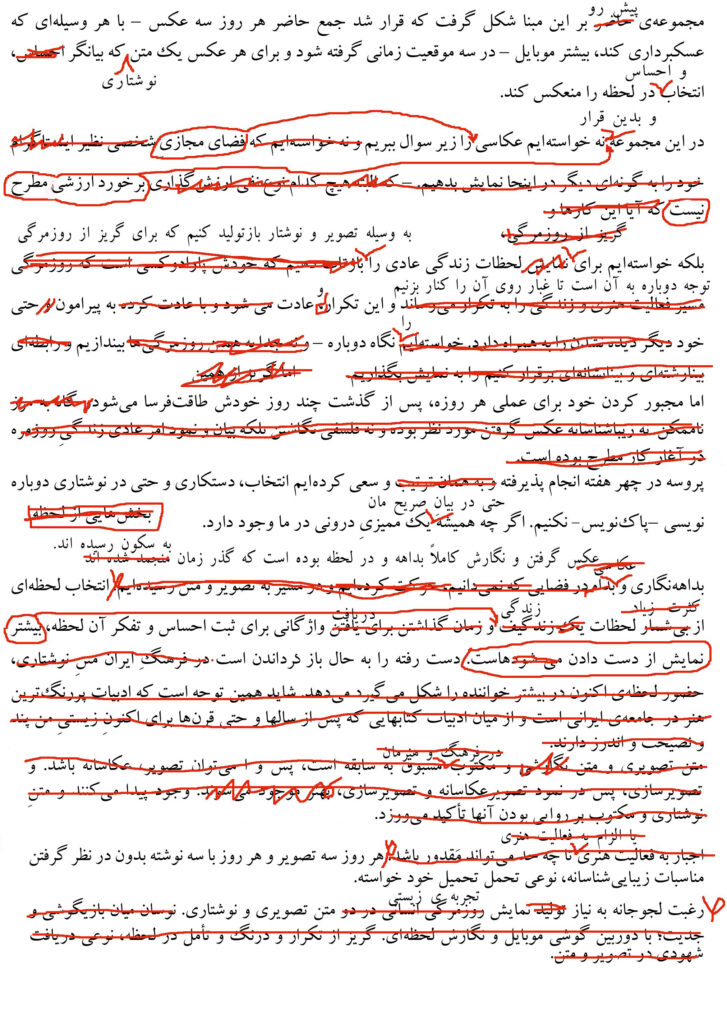 پیش رو
مجموعه‌ی حاضر بر این مبنا شکل گرفت که قرار شد جمع حاضر هر روز سه عکس – با هر وسیله‌ای که
عسکبرداری کند، بیشتر موبایل – در سه موقعیت زمانی گرفته شود و برای هر عکس یک متن که بیانگر احساس،
نوشتاری
و احساس
انتخاب در لحظه را منعکس کند.
و بدین قرار
در این مجموعه نه خواسته‌ایم عکاسی را زیر سوال ببریم و نه خواسته‌ایم که فضای مجازی شخصی نظیر اینستاگرام
خود را به گونه‌ای دیگر در اینجا نمایش بدهیم. – که البته هیچ کدام نوع نفی ارزش گذاری برخورد ارزشی مطرح
نیست که آیا این کارها و
گریز از روزمرگی،
به وسیله تصویر و نوشتار بازتولید کنیم که برای گریز از روزمرگی
بلکه خواسته‌ایم برای نمایش لحظات زندگی عادی را بازتاب دهیم که خودش پارادوکسی است که روزمرگی
توجه دوباره به آن است تا غبار روی آن را کنار بزنیم
مسیر فعالیت هنری و زندگی را به تکرار می‌رساند و این تکرار، عادت می شود و با عادت کرده به پیرامون و حتی
و
را
خود دیگر دیده نشدن را به همراه دارد. خواسته‌ایم نگاه دوباره – و نه جدا به همین روزمرگی‌ها بیندازیم و رابطه‌ای
بینارشته‌ای و بینانشانه‌ای برقرار کنیم را به نمایش بگذاریم
اما گریز از همین
اما مجبور کردن خود برای عملی هر روزه، پس از گذشت چند روز خودش طاقت‌فرسا می‌شود. نگاه به مرز
ناممکن نه زیباشناسانه عکس گرفتن مورد نظر بوده و نه فلسفی نگاشتن بلکه بیان و نمود امر عادی زندگیِ روزوره
در آغاز کار مطرح بوده است.
پروسه در چهر هفته انجام پذیرفته و به همان ترتیب و سعی کرده‌ایم انتخاب، دستکاری و حتی در نوشتاری دوباره
حتی در بیان صریح مان
نویسی –پاک‌نویس- نکنیم. اگر چه همیشه یک ممیزیِ درونی در ما وجود دارد.
بخش‌هایی از لحظه
به سکون رسیده اند.
عکس گرفتن و نگارش کاملاً بداهه و در لحظه بوده است که گذر زمان منجمد شده اند
عکاسی
بداهه‌نگاری و بداهه در فضایی که نمی‌دانیم. حرکت کرده‌ایم و در مسیر به تصویر و متن رسیده‌ایم. انتخاب لحظه‌ای
کثرت زیاد
زندگی
دریافت
از بی شمار لحظات یک زندگیت و زمان گذاشتن برای یافتن واژگانی برای ثبت احساس و تفکر آن لحظه، بیشتر
نمایش از دست دادن می شودهاست. دست رفته را به حال باز گرداندن است. در فرهنگ ایران متنِ نوشتاری،
حضور لحظه‌ی اکنون در بیشتر خواننده را شکل می‌گیرد می‌دهد. شاید همین توجه است که ادبیات پررنگ‌ترین
هنر در جامعه‌ی ایرانی است و از میان ادبیات کتابهایی که پس از سالها و حتی قرن‌ها برای اکنونِ زیستیِ من پند
و نصیحت و اندرز دارند.
در فرهنگ و هنرمان
متن تصویری و متن نگارشی و مکتوب مسبوق به سابقه است، پس و ا می‌توان تصویر، عکاسانه باشد. و
تصویرسازی، پس در نمود تصویر عکاسانه و تصویرسازی، بهتر موجود می‌شوند. وجود پیدا می‌کنند و متنِ
نوشتاری و مکتوب بر روایی بودن آنها تأکید می‌ورزد.
یا الزام به فعالیت هنری
اجبار به فعالیت هنری تا چه حد می‌تواند مَقدور باشد. هر روز سه تصویر و هر روز با سه نوشته بدون در نظر گرفتن
مناسبات زیبایی‌شناسانه، نوعی تحمل تحمیل خود خواسته.
تجربه ی زیستی
رغبت لجوجانه به نیاز تولید نمایش روزمرگی انسانی در دو متن تصویری و نوشتاری. نوسان میان بازیگوشی و
جدیت؛ با دوربین گوشی موبایل و نگارش لحظه‌ای. گریز از تکرار و درنگ و تأمل در لحظه، نوعی دریافت
شهودی در تصویر و متن.